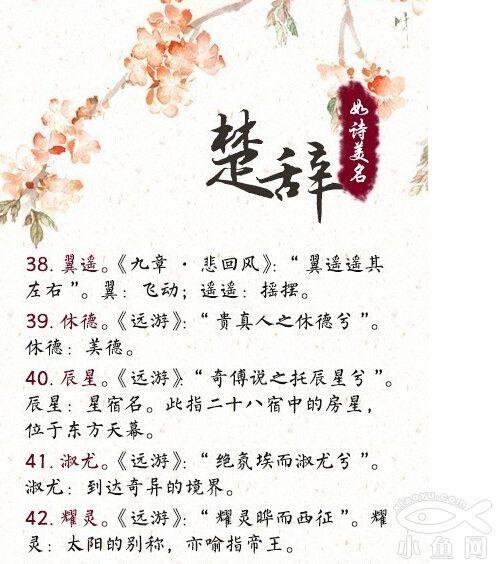 楚辞
如诗美名
38. 翼遥。《九章·悲回风》：“翼遥遥其
左右”。翼：飞动；遥遥：摇摆。
39. 休德。《远游》：“贵真人之休德兮”。
休德：美德。
40. 辰星。《远游》：“奇傅说之托辰星兮”。
辰星：星宿名。此指二十八宿中的房星，
位于东方天幕。
41. 淑尤。《远游》：“绝氛埃而淑尤兮”。
淑尤：到达奇异的境界。
42. 耀灵。《远游》：“耀灵晔而西征”。耀
灵：太阳的别称，亦喻指帝王。
xiaoyu.com
小鱼网